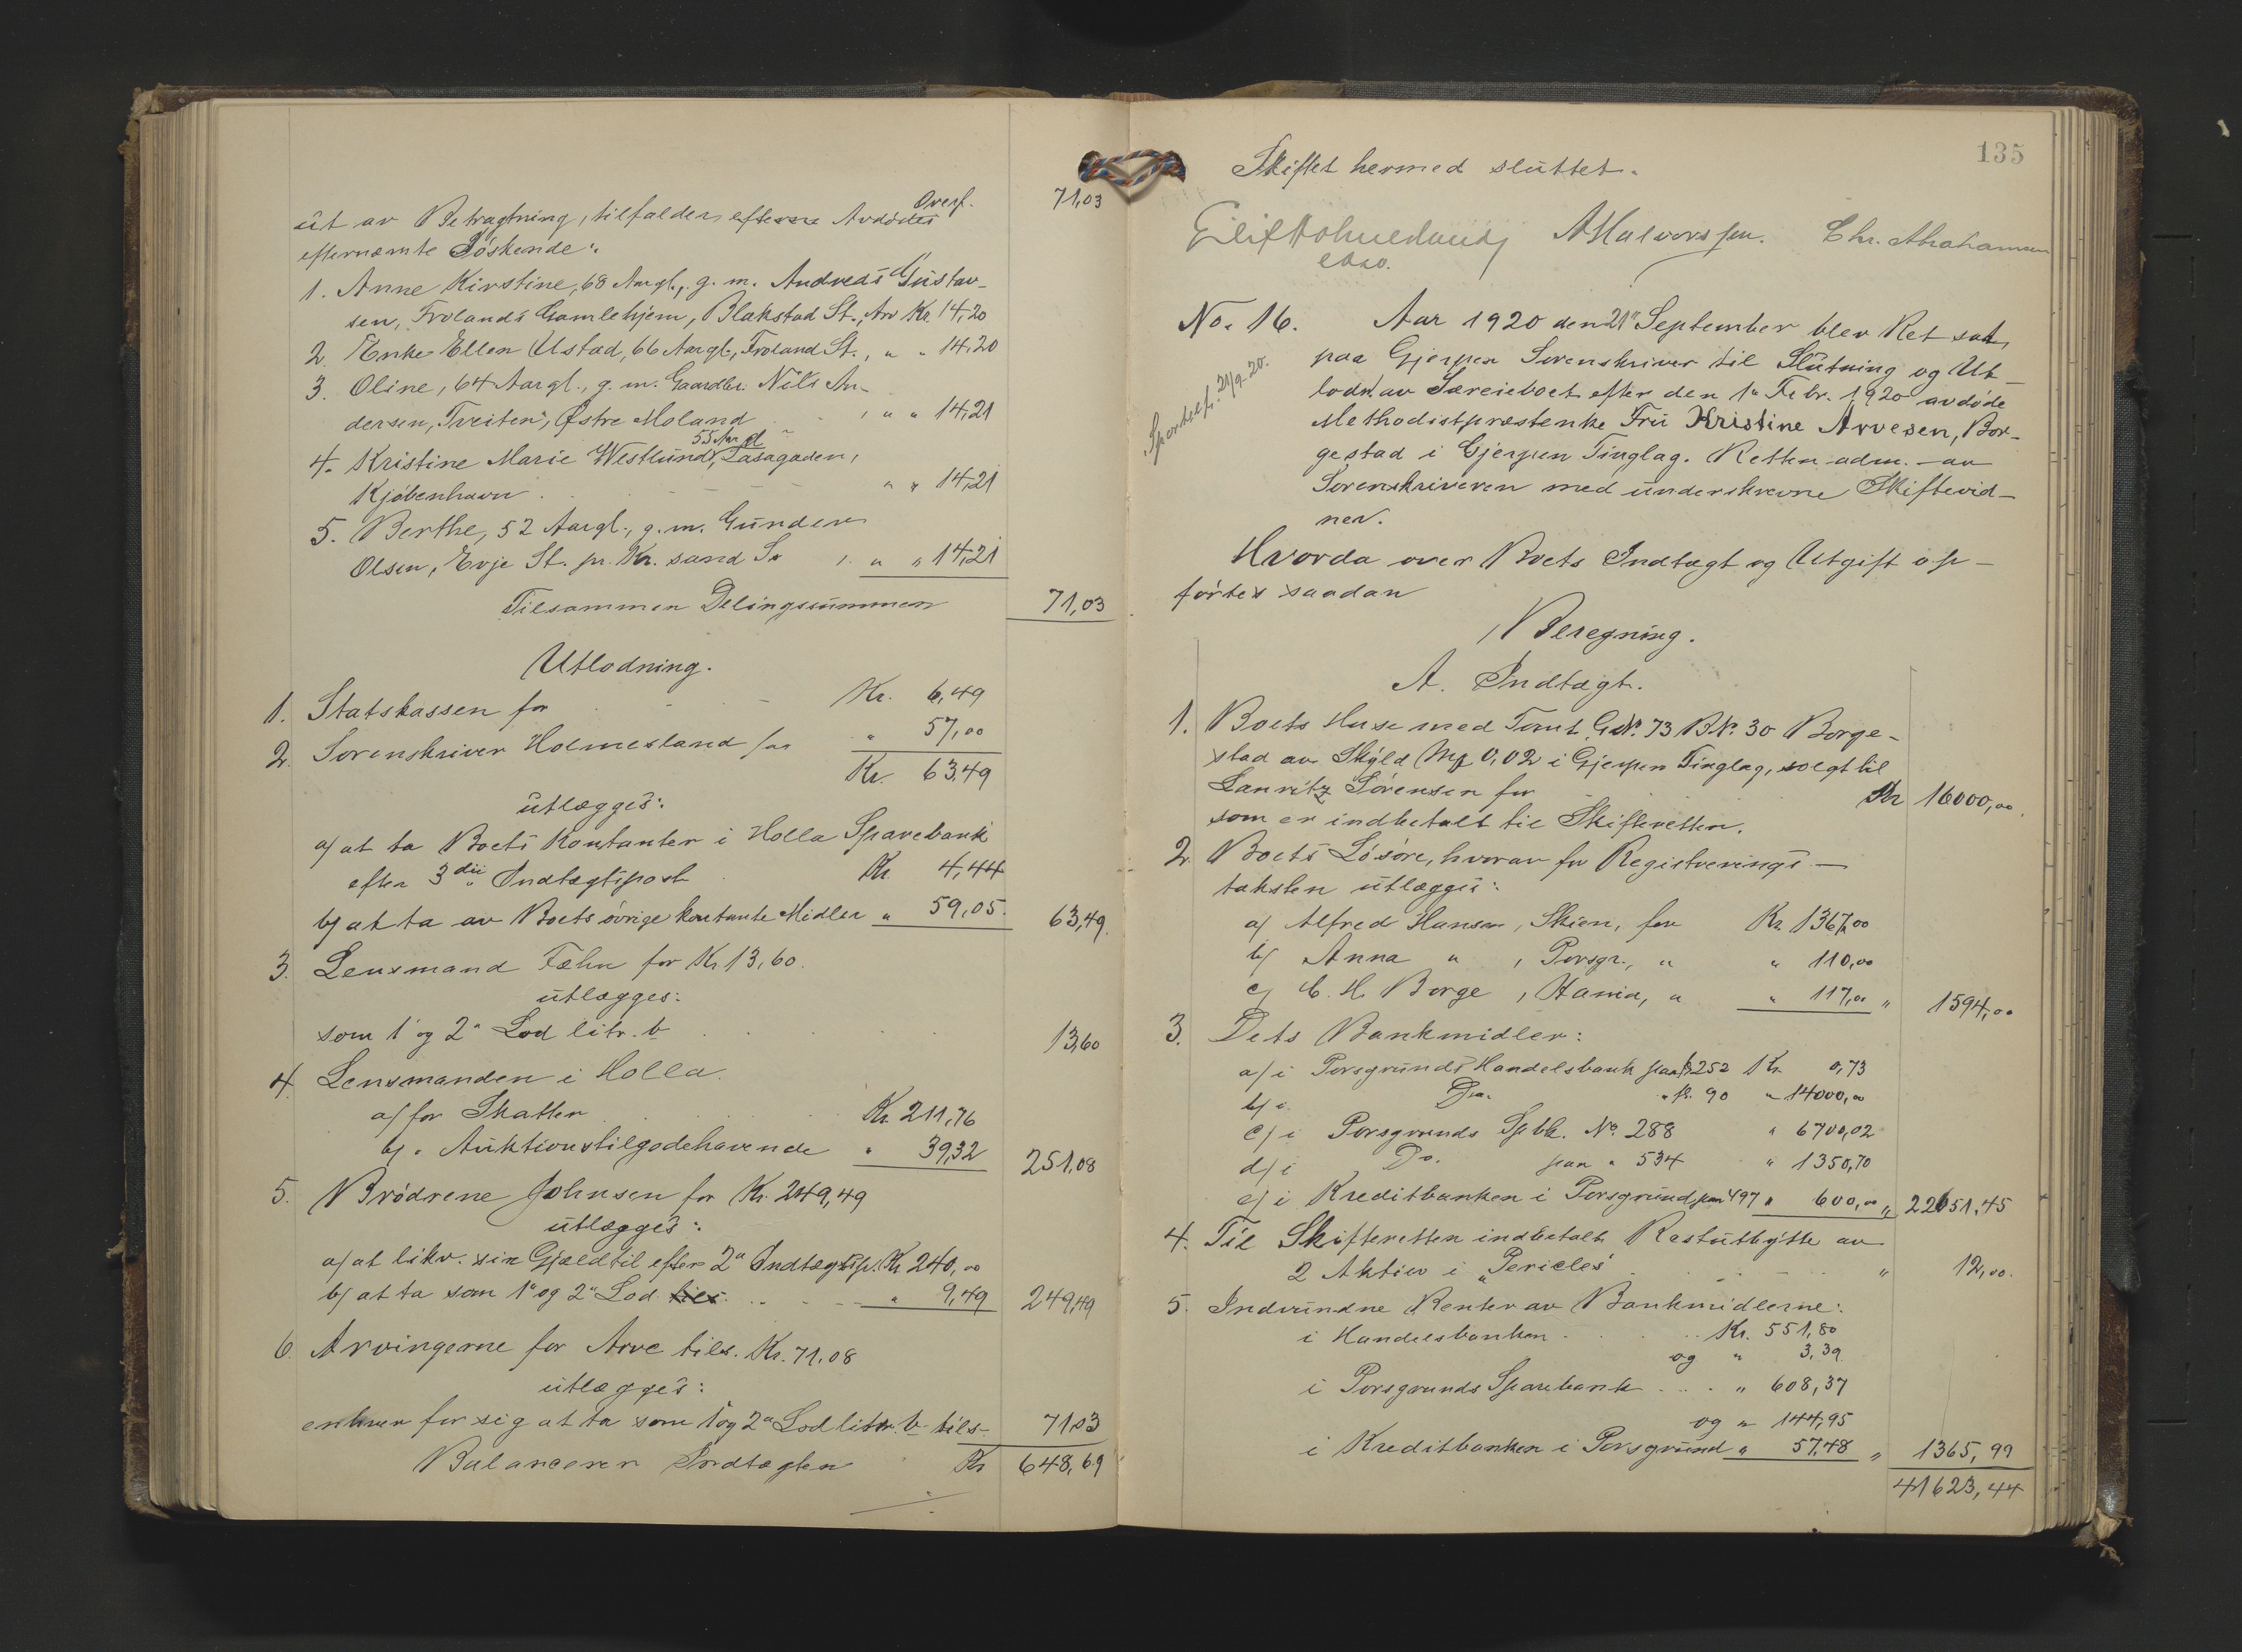 Overf. 71,03
ut av Betragtning, tilfalder efterne Avdödes
efternæmte Söskende:
1. Anne Kirstine, 68 Aargl., g. m. Andreas Gustav-
sen, Frolands Gamlehjem, Blakstad St., Arv Kr. 14,20
2. Enke Ellen Ustad, 66 Aargl., Froland St., " " 14,20
3. Oline, 64 Aargl., g. m. Gaardbr. Nils An-
dersen, Tveiten, Østre Moland , " " 14,21
55 Aar gl
4. Kristine Marie Westlund, Lasagaden,
Kjöbenhavn . " " 14,21
5. Berthe, 52 Aargl., g. m. Gunder
Olsen, Evje St. pr. Kr.sand S. , " " 14,21
Tilsammen Delingssummen 71,03
Utlodning.
1. Statskassen for Kr. 6,49
2. Sorenskriver Holmesland for " 57,00
Kr. 63,49
utlægges:
a/ at ta Boets Kontanter i Holla Sparebank
efter 3die Indtægtspost Kr. 4,44
b/ at ta av Boets övrige kontante Midler " 59,05. 63,49.
3. Lensmand Fæhn for Kr. 13,60.
utlægges:
som 1 og 2" Lod litr. b 13,60
4. Lensmanden i Holla.
a/ for Skatter Kr. 211,76
b/ " Auktionstilgodehavende " 39,32 251,08
5. Brödrene Johnsen for Kr. 249,49
utlægges:
a/ at likv. sin Gjæld til efter 2" Indtægtsp. Kr. 240,00
b/ at ta som 1" og 2" Lod " 9,49 249,49
6. Arvingerne for Arve tils. Kr. 71,08
utlægges:
enhver for sig at ta som 1" og 2" Lod litr. b tils. 71,03
Balancerer Indtægten Kr. 648,69
135
Skiftet hermed sluttet.
Eilif Holmesland AHalvorssen. Chr. Abrahamsen
No. 16. Aar 1920 den 21" September blev Ret sat
paa Gjerpen Sorenskriveri til Slutning og Ut-
lodn. av Særeieboet efter den 1" Febr. 1920 avdöde
Methodistpræstenke Fru Kristine Arvesen, Bor-
gestad i Gjerpen Tinglag. Retten adm. av
Sorenskriveren med underskrevne Skiftevid-
ner.
21/9-20.
Hvorda over Boets Indtægt og Utgift op-
förtes saadan
Beregning.
A. Indtægt.
1. Boets Huse med Tomt GNr. 73 BNr. 30 Borge-
stad av Skyld Mk 0,02 i Gjerpen Tinglag, solgt til
Lauritz Sörensen for Kr. 16000,00
som er indbetalt til Skifteretten.
2. Boets Lösöre, hvorav for Registrerings-
taksten utlægges:
a/ Alfred Hansen, Skien, for Kr. 1367,00
b/ Anna " , Porsgr., " " 110,00
c/ C. H. Borge, , " " 117,00 " 1594,00
3. Dets Bankmidler:
a/ i Porsgrunds Handelsbank paa fo 252 Kr. 0,73
b/ i Do. " fo. 90 " 14000,00
c/ i Porsgrunds Spbk. No. 288 " 6700,02
d/ i Do. paa " 534 " 1350,70
e/ i Kreditbanken i Porsgrund paa 497 " 600,00 " 22651,45
4. Til Skifteretten indbetalt Restutbytte av
2 Aktier i "Pericles" " 12,00.
5. Indvundne Renter av Bankmidlerne:
i Handelsbanken Kr. 551,80
og " 3,39
i Porsgrunds Sparebank " 608,37
og " 144,95
i Kreditbanken i Porsgrund " 57,48 " 1365,99
41623,44